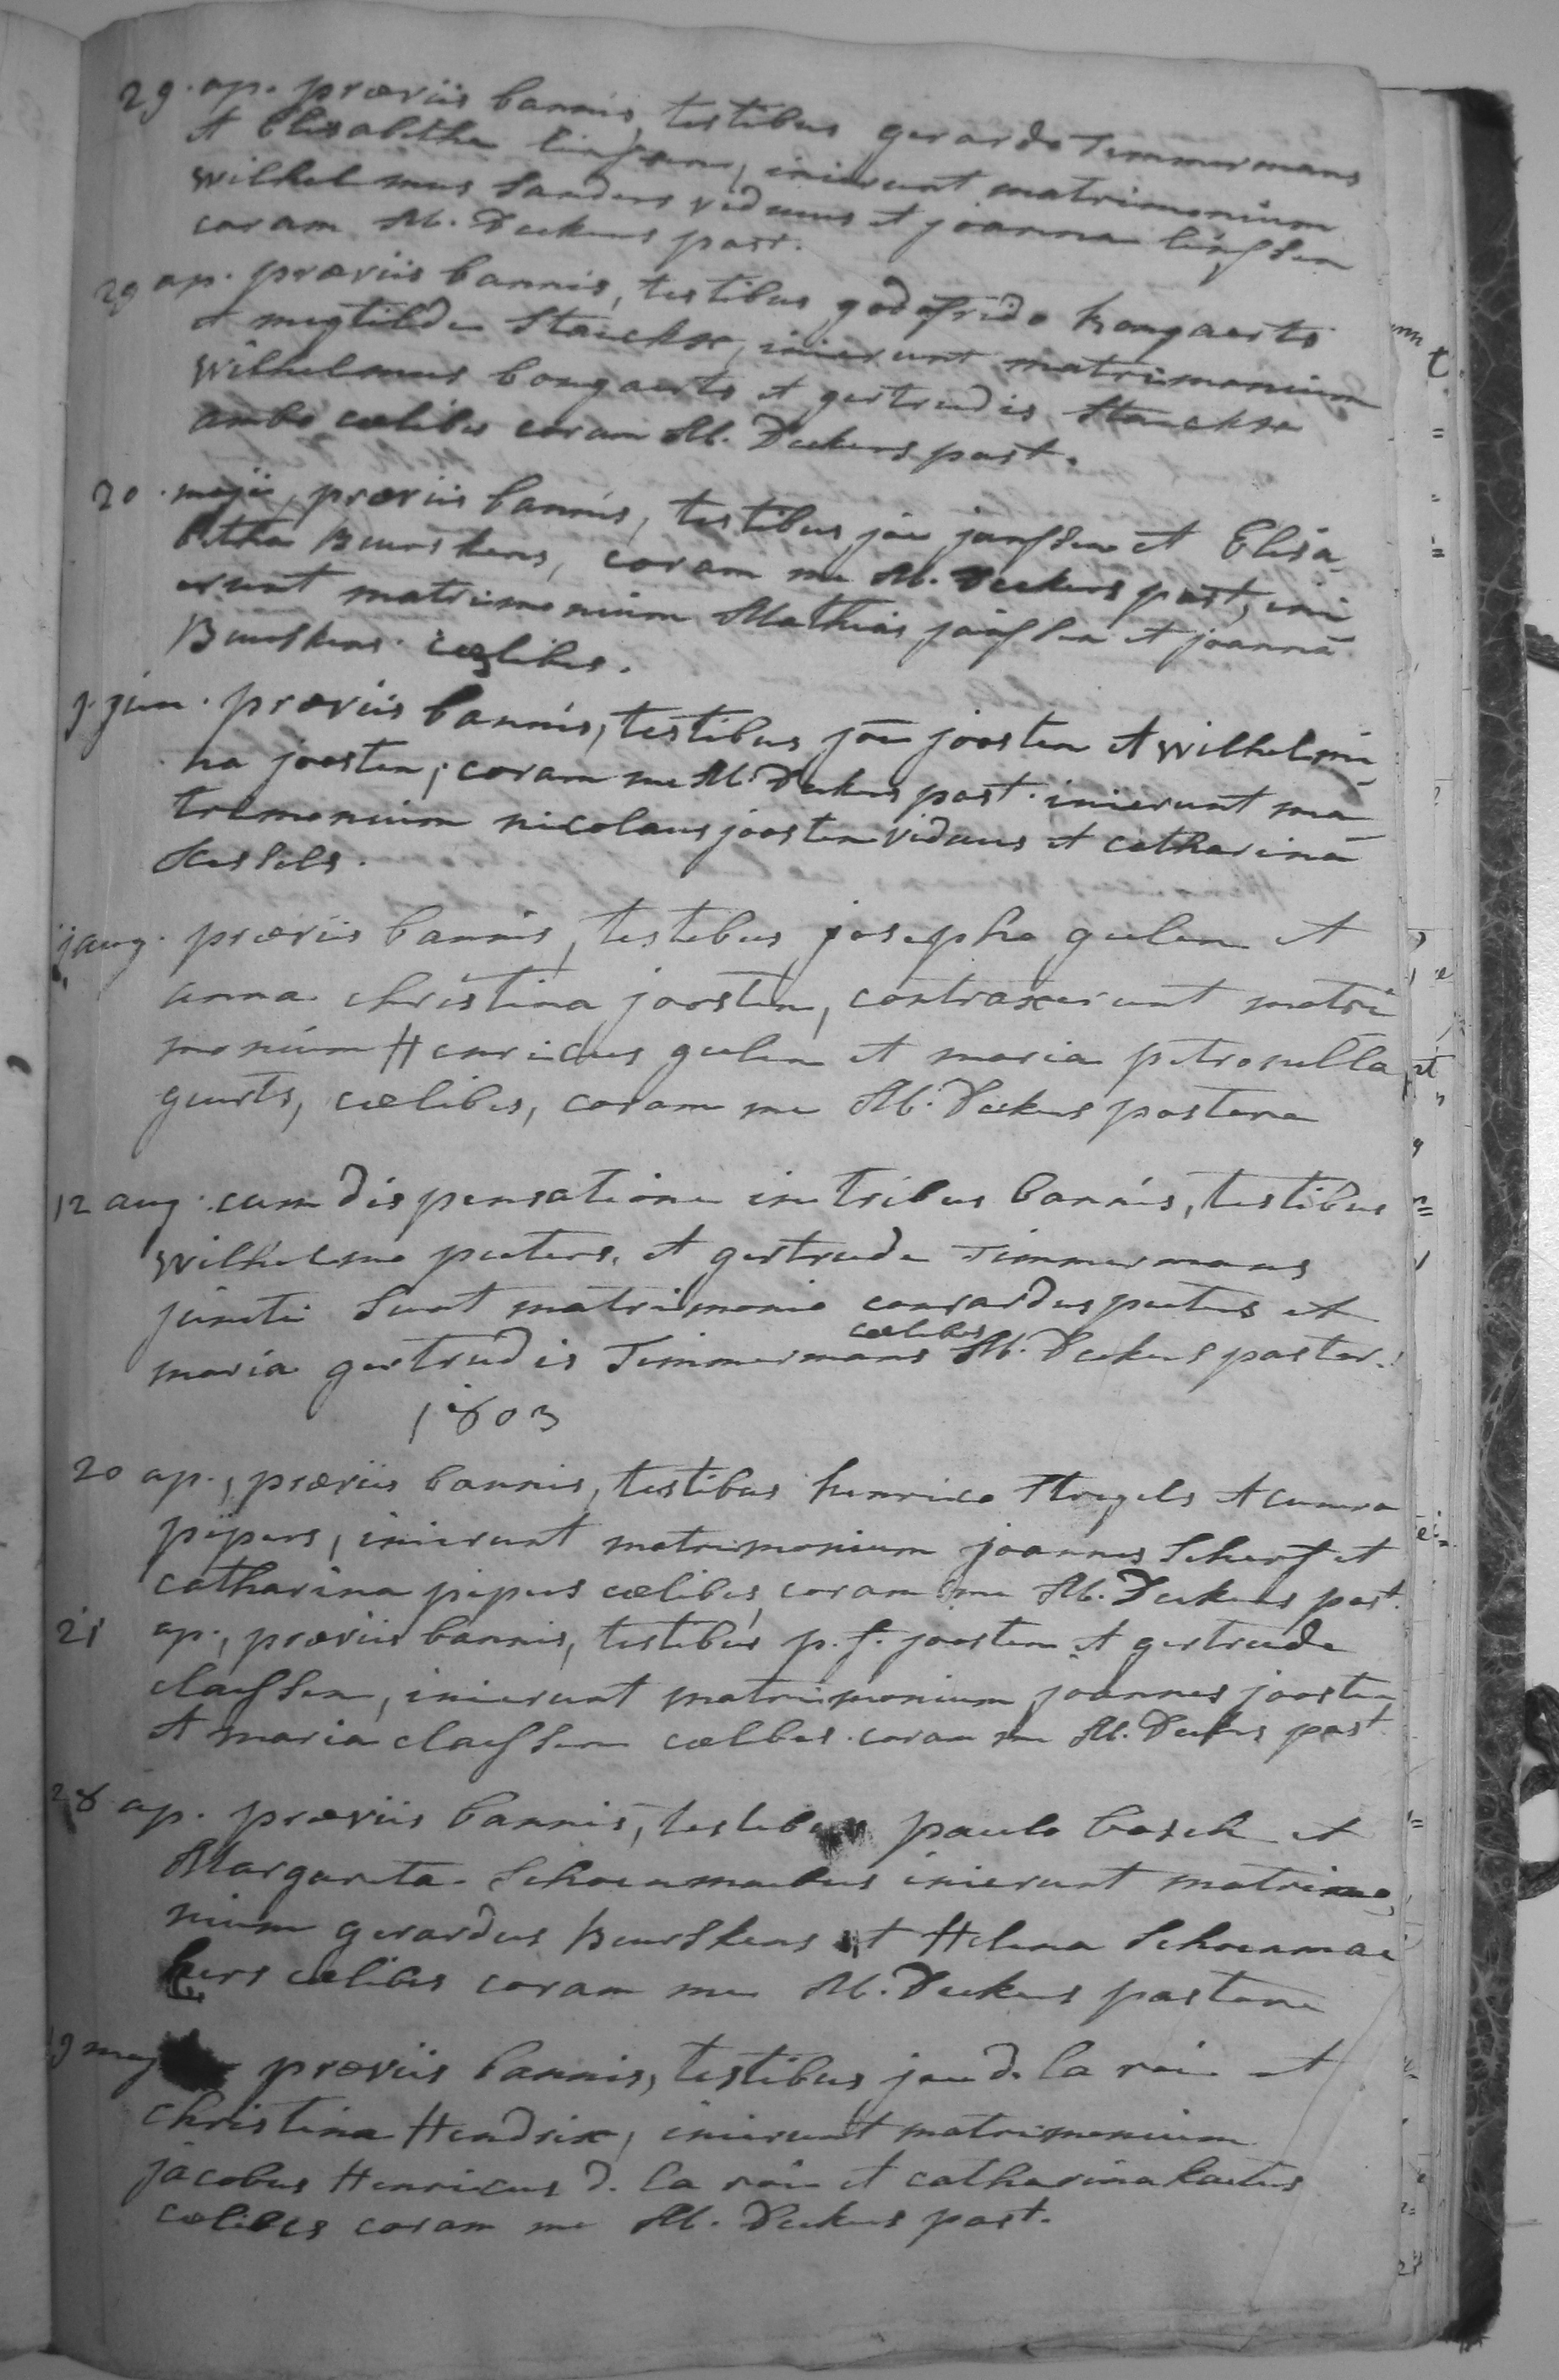 29. ap. præviis bannis, testibus gerardo Timmermans
et Elisabetha linssen, inierunt matrimonium
wilhelmus sanders viduus et joanna linssen
coram M. Deckers past.
29 ap. præviis bannis, testibus godefrido bongaerts
et megtilde Stanckx, inierunt matrimonium
wilhelmus bongaerts et gertrudis Stanckx
ambo cælibes coram M. Deckers past.
20. maji, præviis bannis, testibus jöe janssen et Elisa
betha Beurskens, coram me M. Deckers past, ini
erunt matrimonium Mathias janssen et joanna
Beurskens. cælibes.
jun. præviis bannis, testibus jöe joosten et wilhelmi
na joosten, coram me M. Deckers past. inierunt ma
trimonium nicolaus joosten viduus et catharina
Kessels.
aug. præviis bannis, testibus josepho geelen et
anna christina joosten, contraxerunt matri
monium Henricus geelen et maria petronella
geurts, cælibes, coram me M. Deckers pastore
12 aug. cum dispensatione in tribus bannis, testibus
wilhelmo peeters, et gertrude Timmermans
juncti sunt matrimonio conrardus peeters et
maria gertrudis Timmermans cælibes M. Deckers pastor.
1803
20 ap., præviis bannis, testibus henrico Stregels et cunera
pijpers, inierunt matrimonium joannes Scherf et
catharina pipers cælibes, coram me M. Deckers past.
21 ap., præviis bannis, testibus p. f. joosten et gertrude
claessen, inierunt matrimonium joannes joosten
et maria claessen cælbes. coram me M. Deckers past
28 ap. præviis bannis, testibus paulo bosch et
Margareta Schoenmaekers inierunt matrimo
nium gerardus Beurskens et Helena Schoenmae
kers cælibes coram me M. Deckers pastore
præviis bannis, testibus joe d. la roi et
christina Hendrix, inierunt matrimonium
jacobus Henricus d. la roi et catharina
cælibes coram me M. Deckers past.